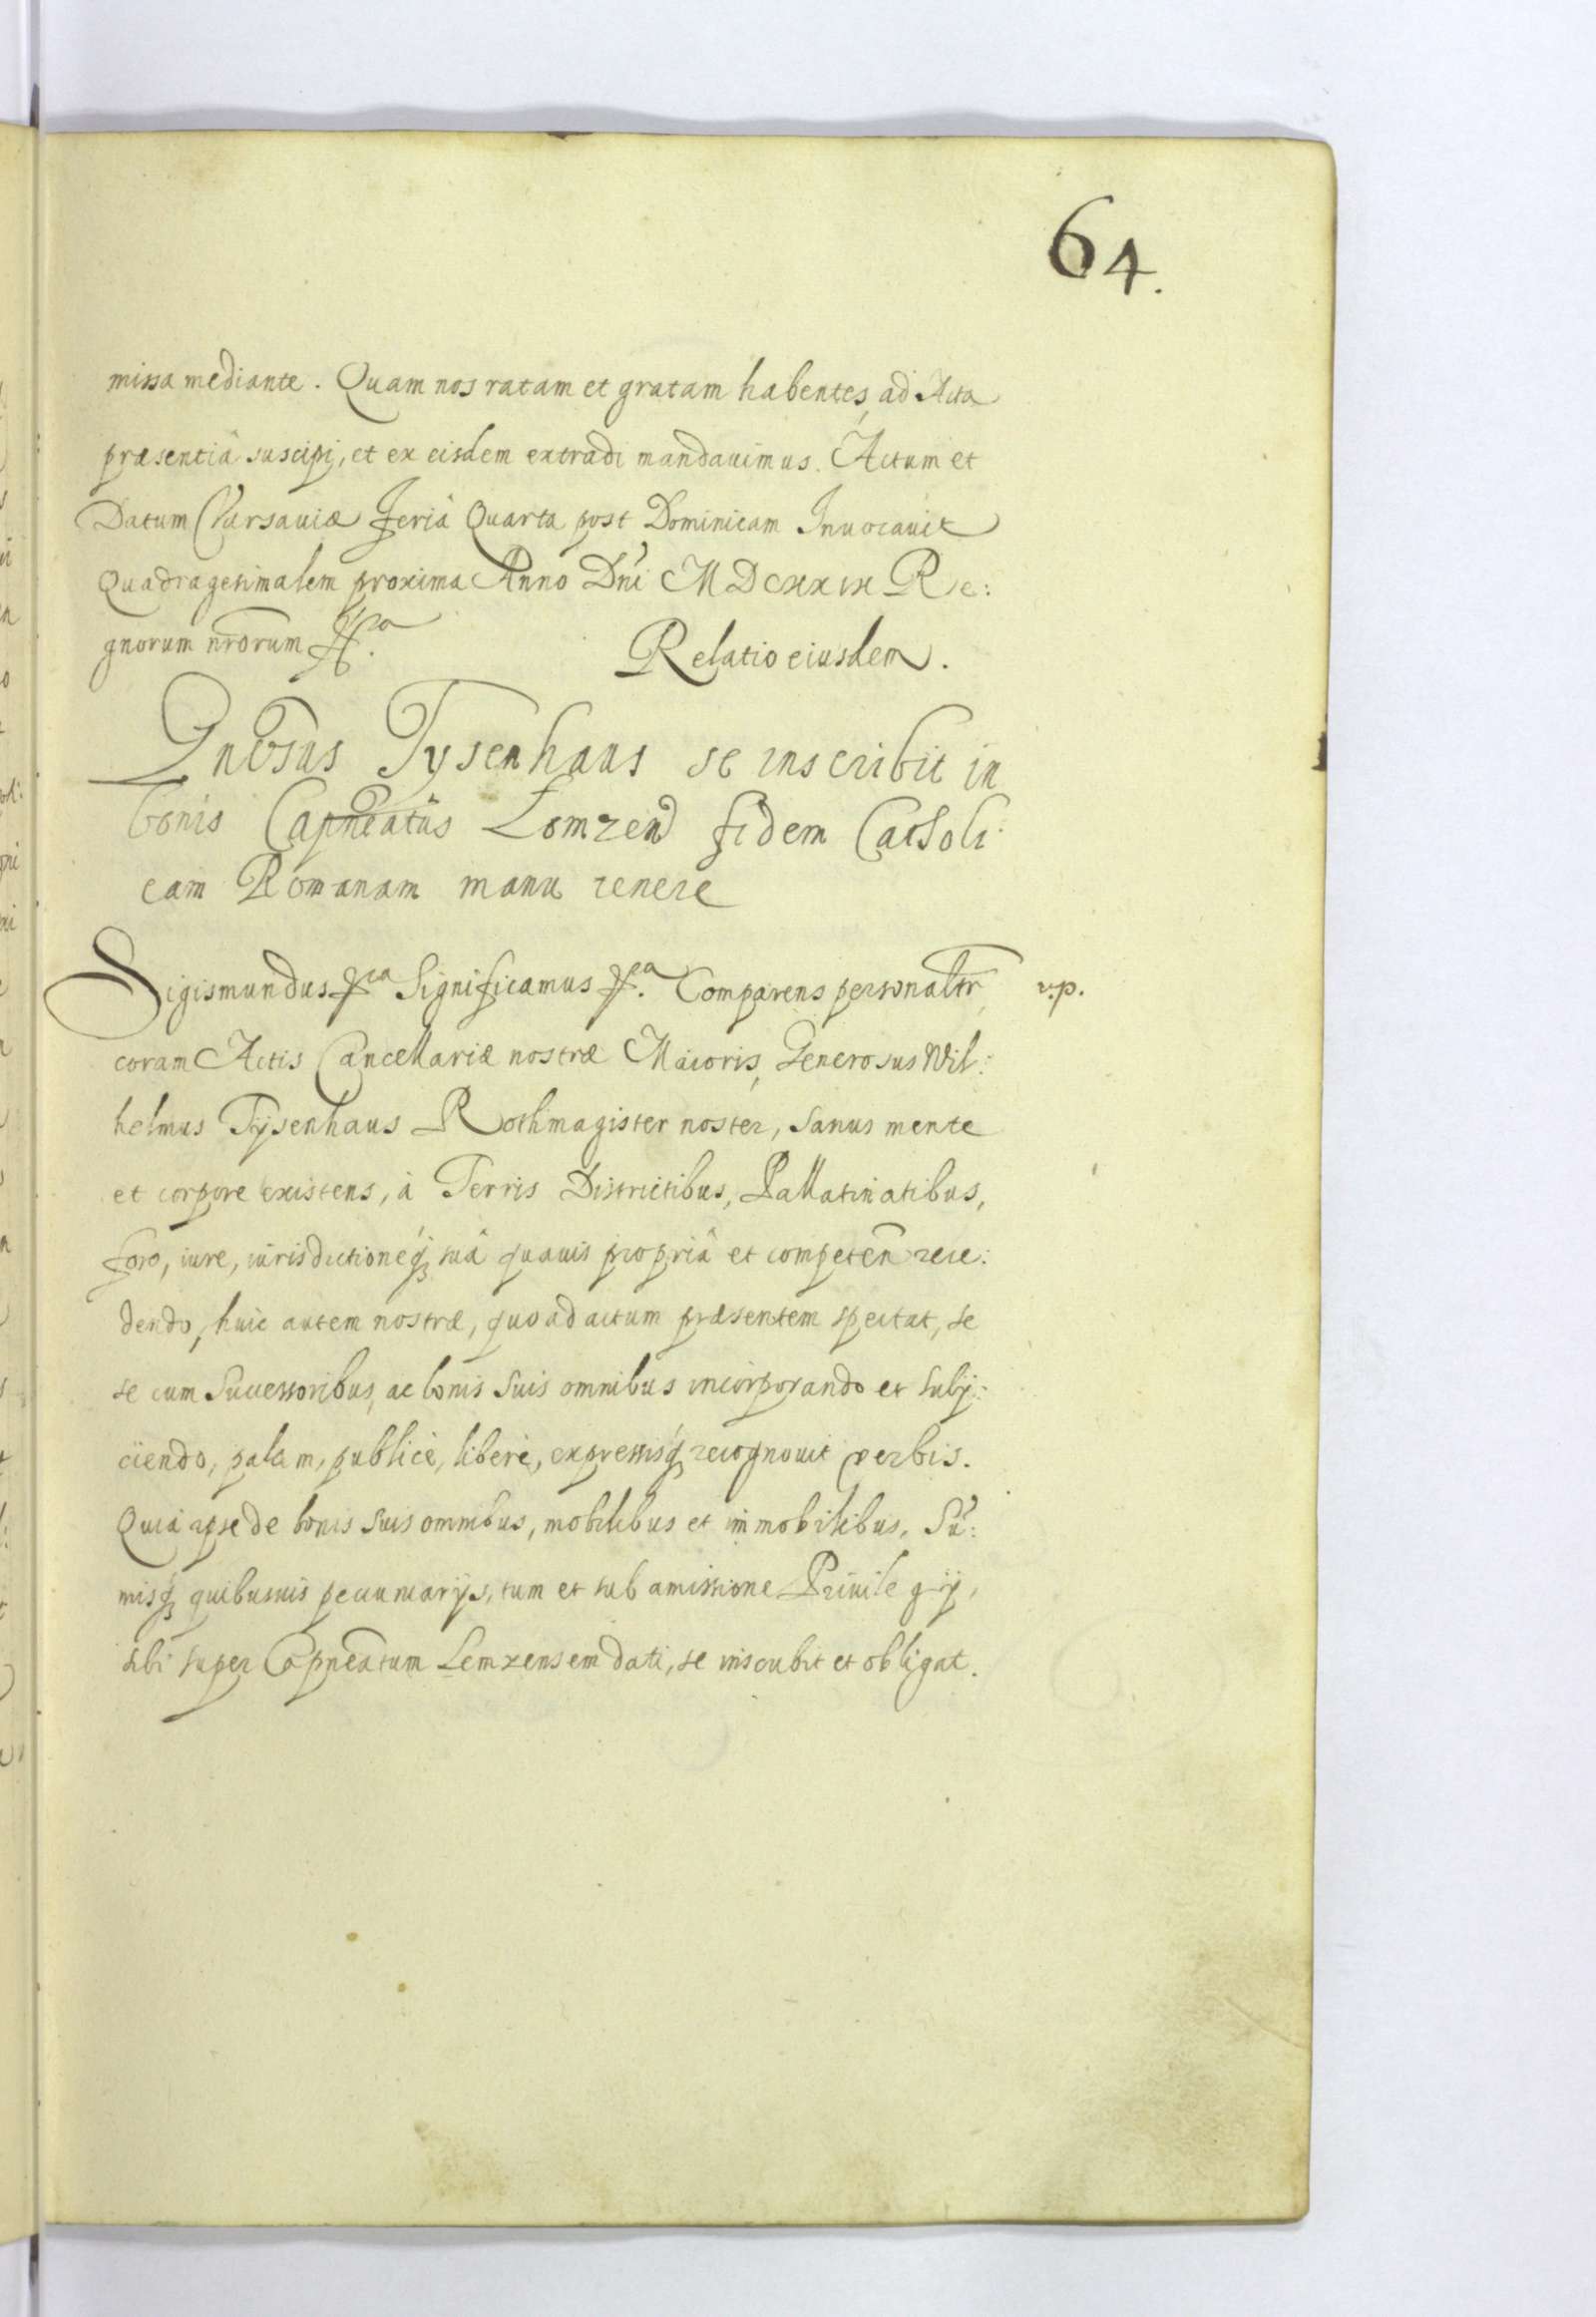 64.
missa mediante. Quam nos ratam et gratam habentes, ad Acta
præsentiâ suscipj, et ex eisdem extradi mandauimus. Actum et
Datum Varsauiæ Feriâ Quarta post Dominicam Inuocauit
Quadragesimalem proxima Anno Dn̄i MDCXXIX Re:
gnorum nr̄orum &ca.
Relatio eiusdem.
Gn̄osus Tysenhaus se inscribit in
bonis Capn̄eatus Lomzen̄ fidem Catholi:
cam Romanam manu tenere
Sigismundus &ca Significamus &ca. Comparens personalr̄ v.p.
coram Actis Cancellariæ nostræ Maioris, Generosus Wil:
helmus Tÿsenhaus Rothmagister noster, sanus mente
et corpore existens, à Terris Districtibus, Pallatinatibus,
foro, iure, iurisdictioneq́ꝫ suâ quauis propriâ et competen̄ rece:
dendo, huic autem nostræ, quo ad actum præsentem spectat, se
se cum Successoribus, ac bonis suis omnibus incorporando et subij:
ciendo, palam, publicè, liberè, expressisq́ꝫ recognouit verbis.
Quià ipse de bonis suis omnibus, mobilibus et immobilibus, Su̅:
misq́ꝫ quibusuis pecuniarijs, tum et sub amissione Priuilegij,
sibi super Capn̄eatum Lemzensem dati, se inscribit et obligat.